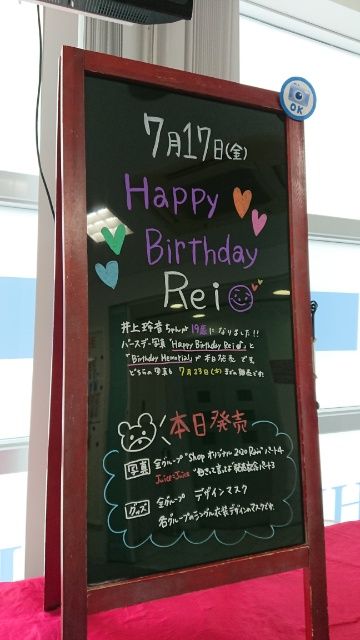 OK
7月17日(金)
Happy
Birthday
Rei
井上玲音ちゃんが19歳になりました!!
バースデー写真"Happy Birthday Rei"と
"Birthday Memorial"が本日発売です。
どちらの写真も7月23日(木)までの販売です!
本日発売
写真 全グループ"Shopオリジナル2020 Rain"パート4
Juice=Juice
パート3
グッズ 全グループ デザインマスク
各グループのシングル衣装デザインのマスクです。